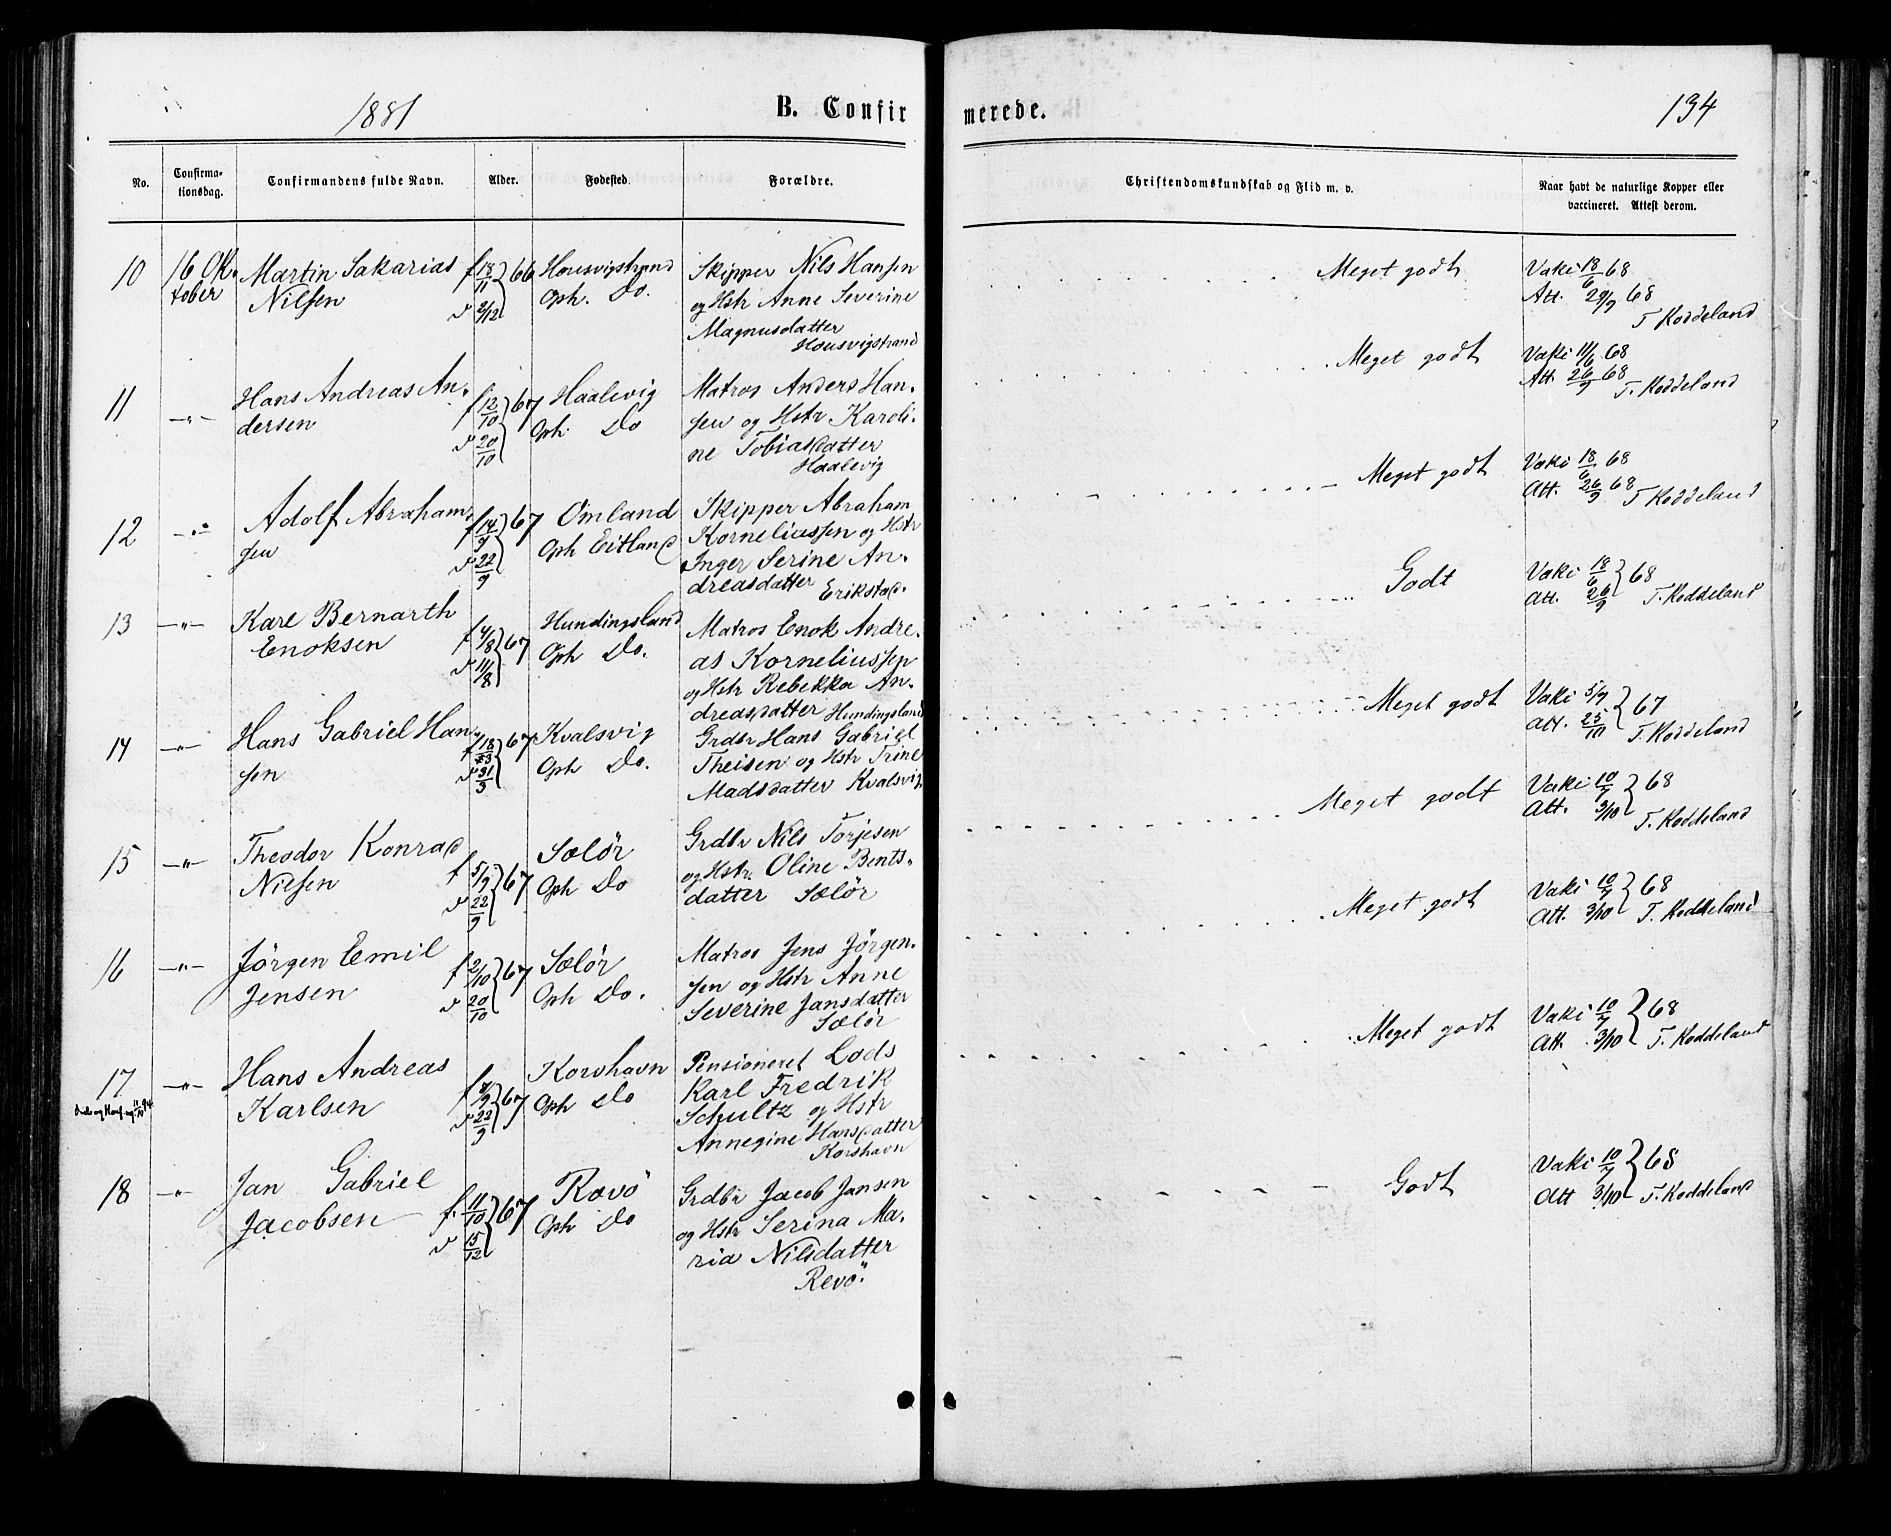 1881
B. Confirmerede.
134
No.
Confirma-
tionsdag.
Confirmandens fulde Navn.
Alder.
Fødested.
Forældre.
Christendomskundskab og Flid m. v.
Naar havt de naturlige Kopper eller
vaccineret. Attest derom.
10 16 Ok- Martin Sakarias f 18/11 66 Housvigstrand Skipper Nils Hansen Meget godt Vaki 18/6 68
tober Nilsen v 2/12 Oph. Do. og Hstr Anne Severine Att. 29/9 68
Magnusdatter T Koddeland
Housvigstrand
11 -"- Hans Andreas An- f 12/10 67 Haalevig Matros Anders Han- Meget godt Vaki 11/6 68
dersen v 20/10 Oph. Do sen og Hstr Karoli- Att. 26/9 68 T. Koddeland
ne Tobiasdatter
Haalevig
12 -"- Adolf Abraham- f 14/9 67 Omland Skipper Abraham Meget godt Vaki 18/6 68
sen v 22/9 Oph Eitland Korneliussen og Hstr Att. 26/9 68 T Koddeland
Inger Serine An-
dreasdatter Erikstad.
13 -"- Karl Bernarth f 4/8 67 Hundingsland Matros Enok Andre- Godt Vaki 18/6 68
Enoksen v 11/8 Oph Do. as Korneliussen Att. 26/9 T. Koddeland
og Hstr Rebekka An-
dreasdatter Hundingsland
14 -"- Hans Gabriel Han- f 18/3 67 Kvalsvig Grdbr Hans Gabriel Meget godt Vaki 5/7 67
sen v 31/3 Oph Do. Theisen og Hstr Trine Att. 25/10 T. Koddeland
Madsdatter Kvalsvig
15 -"- Theodor Konrad f 5/9 67 Sælør Grdbr Nils Torjesen Meget godt Vaki 10/7 68
Nilsen v 22/9 Oph Do og Hstr. Oline Bents- Att. 3/10 T. Koddeland
datter Sælør
16 -"- Jørgen Emil f 2/10 67 Sælør Matros Jens Jørgen- Meget godt Vaki 10/7 68
Jensen v 20/10 Oph Do. sen og Hstr Anne Att. 3/10 T. Koddeland
Severine Jansdatter
Sælør
17 -"- Hans Andreas f 7/9 67 Korshavn Pensioneret Lods Meget godt Vaki 10/7 68
Karlsen v 22/9 Oph Do Karl Fredrik Att. 3/10 T. Koddeland
Schultz og Hstr
Annegine Hansdatter
Korshavn
18 -"- Jan Gabriel f. 11/10 67 Rævö Grdbr Jacob Jansen Godt Vaki 10/7 68
Jacobsen v 15/12 Oph Do og Hstr Serina Ma- Att 3/10 T. Koddeland
ria Nilsdatter
Revö